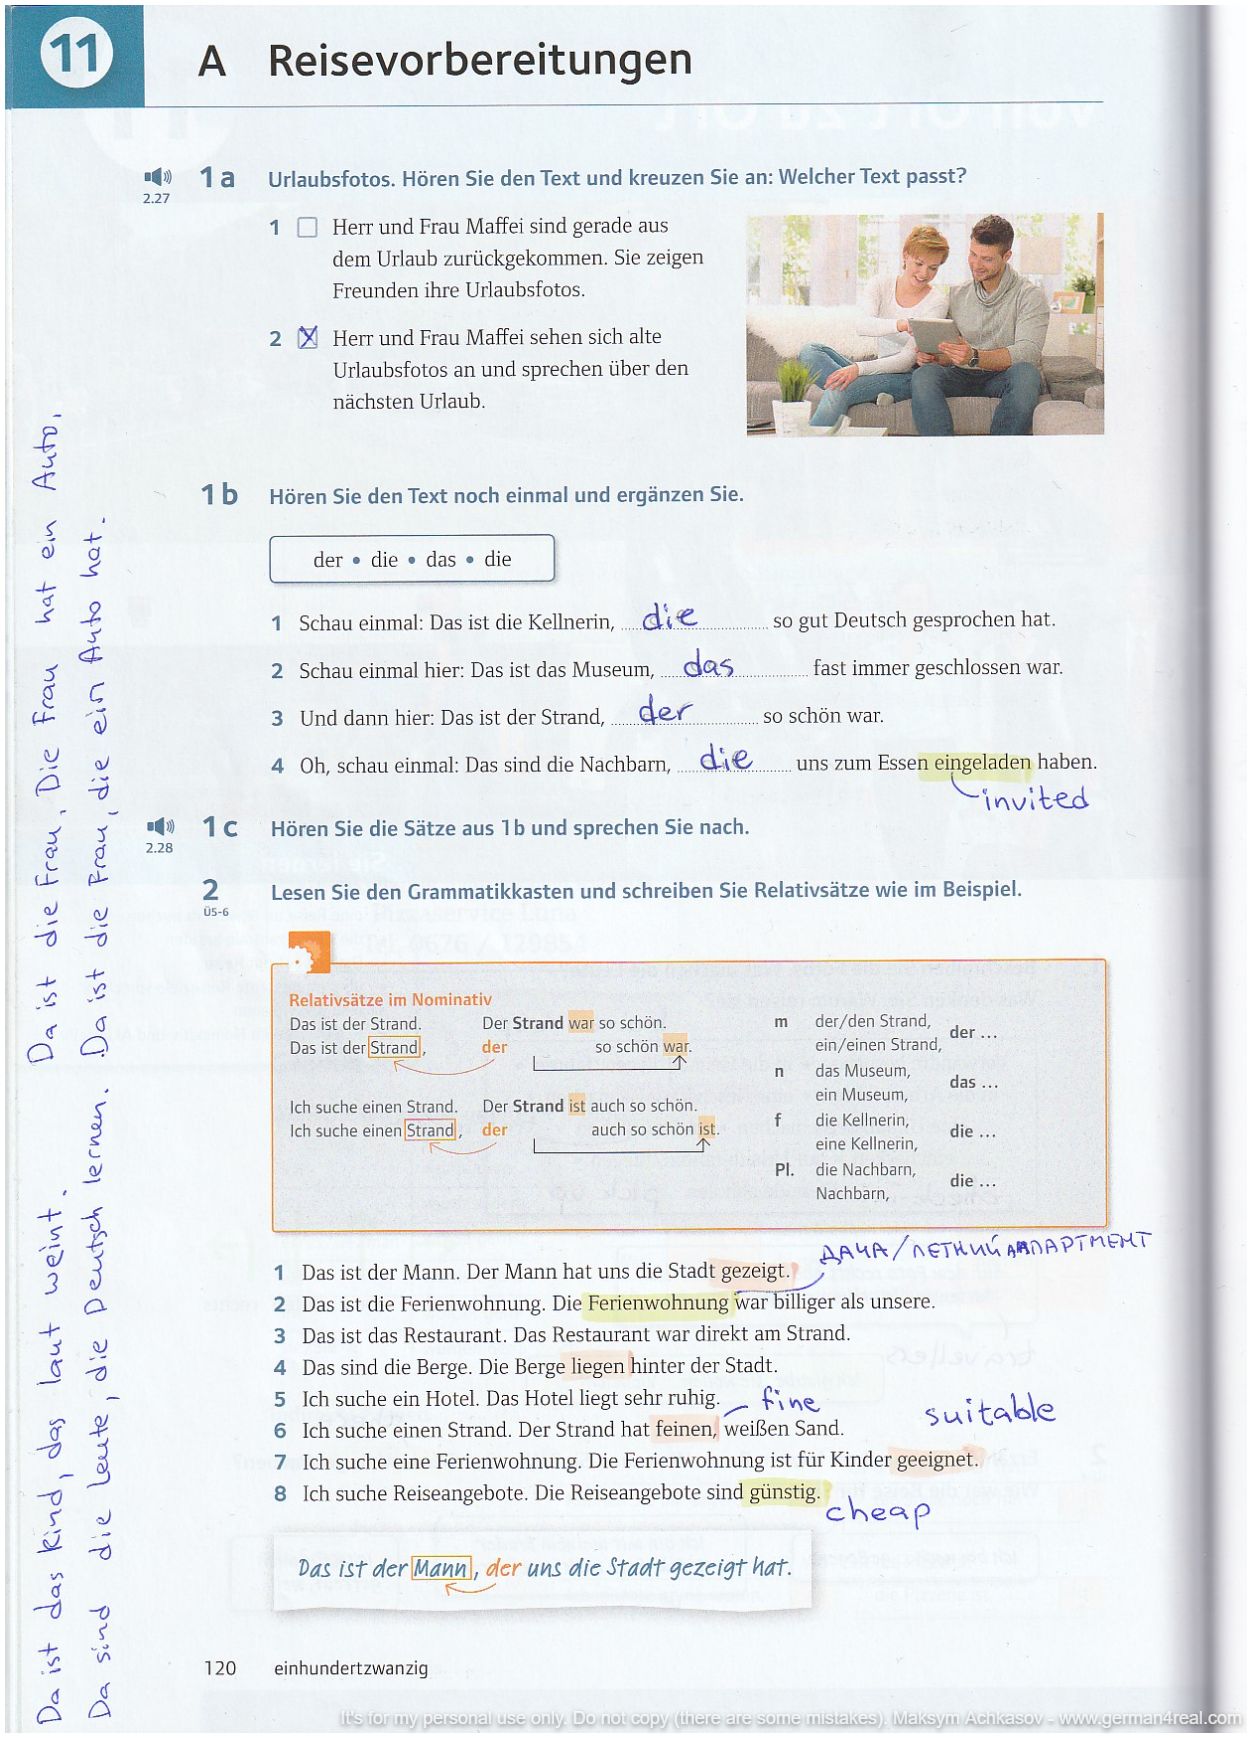 11
A Reisevorbereitungen
2.27
1a Urlaubsfotos. Hören Sie den Text und kreuzen Sie an: Welcher Text passt?
1 Herr und Frau Maffei sind gerade aus
dem Urlaub zurückgekommen. Sie zeigen
Freunden ihre Urlaubsfotos.
2 X Herr und Frau Maffei sehen sich alte
Urlaubsfotos an und sprechen über den
nächsten Urlaub.
1b Hören Sie den Text noch einmal und ergänzen Sie.
der • die • das • die
1 Schau einmal: Das ist die Kellnerin, die so gut Deutsch gesprochen hat.
2 Schau einmal hier: Das ist das Museum, das fast immer geschlossen war.
3 Und dann hier: Das ist der Strand, der so schön war.
4 Oh, schau einmal: Das sind die Nachbarn, die uns zum Essen eingeladen haben.
invited
2.28
1c Hören Sie die Sätze aus 1b und sprechen Sie nach.
2 Lesen Sie den Grammatikkasten und schreiben Sie Relativsätze wie im Beispiel.
Ü5-6
Relativsätze im Nominativ
Das ist der Strand. Der Strand war so schön.
Das ist der Strand, der so schön war.
Ich suche einen Strand. Der Strand ist auch so schön.
Ich suche einen Strand, der auch so schön ist.
m der/den Strand,
ein/einen Strand, der ...
n das Museum,
ein Museum, das ...
f die Kellnerin,
eine Kellnerin, die ...
Pl. die Nachbarn,
Nachbarn, die ...
ДАЧА/ЛЕТНИЙ АПАРТМЕНТ
1 Das ist der Mann. Der Mann hat uns die Stadt gezeigt.
2 Das ist die Ferienwohnung. Die Ferienwohnung war billiger als unsere.
3 Das ist das Restaurant. Das Restaurant war direkt am Strand.
4 Das sind die Berge. Die Berge liegen hinter der Stadt.
5 Ich suche ein Hotel. Das Hotel liegt sehr ruhig.
fine
suitable
6 Ich suche einen Strand. Der Strand hat feinen, weißen Sand.
7 Ich suche eine Ferienwohnung. Die Ferienwohnung ist für Kinder geeignet.
8 Ich suche Reiseangebote. Die Reiseangebote sind günstig.
cheap
Das ist der Mann, der uns die Stadt gezeigt hat.
120 einhundertzwanzig
Da ist das Kind, das laut weint. Da ist die Frau. Die Frau hat ein Auto.
Da sind die Leute, die Deutsch lernen. Da ist die Frau, die ein Auto hat.
It's for my personal use only. Do not copy (there are some mistakes). Maksym Achkasov - www.german4real.com